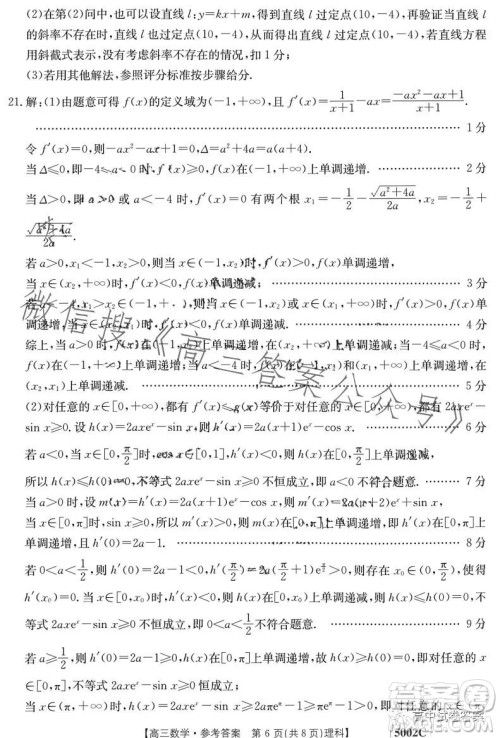 (2)在第(2)问中,也可以设直线 l:y=kx+m,得到直线 l 过定点(10,-4),再验证当直线
的斜率不存在时,直线 l 也过定点(10,-4),从而得出直线 l 过定点(10,-4),若直线方程
用斜截式表示,没有考虑斜率不存在的情况,扣 1 分;
(3)若用其他解法,参照评分标准按步骤给分.
21.解:(1)由题意可得 f(x)的定义域为(-1,+∞),且 f′(x)=1/(x+1)-ax=(-ax²-ax+1)/(x+1).
1 分
令 f′(x)=0,则-ax²-ax+1=0,Δ=a²+4a=a(a+4).
当Δ≤0,即-4≤a≤0 时,f′(x)≥0,f(x)在(-1,+∞)上单调递增. 2 分
当Δ>0,即 a>0 或 a<-4 时,f′(x)=0 有两个根 x₁=-1/2-√(a²+4a)/2a,x₂=-1/2+
√(a²+4a)/2a.
若 a>0,x₁<-1,x₂>0,则当 x∈(-1,x₂)时,f′(x)>0,f(x)单调递增,
当 x∈(x₂,+∞)时,f′(x)<0,f(x)单调递减; 3 分
若 a<-4,x₁>x₂>-1,
调递增,当 x∈(x₂,x₁)时,f′(x)<0,f(x)单调递减. 4 分
综上,当 a>0 时,f(x)在(-1,x₂)上单调递增,在(x₂,+∞)上单调递减;当-4≤a≤0 时,
f(x)在(-1,+∞)上单调递增;当 a<-4 时,f(x)在(-1,x₂)和(x₁,+∞)上单调递增,在
(x₂,x₁)上单调递减. 5 分
(2)对任意的 x∈[0,+∞),都有 f(x)≤g(x)等价于对任意的 x∈[0,+∞)都有 2axeˣ-
sin x≥0.设 h(x)=2axeˣ-sin x,则 h′(x)=2a(x+1)eˣ-cos x. 6 分
当 a≤0,x∈[0,π/2]时,cos x∈[0,1],则 h′(x)≤0,h(x)在[0,π/2]上单调递减,
所以 h(x)≤h(0)=0,不等式 2axeˣ-sin x≥0 不恒成立,即 a≤0 不符合题意. 7 分
当 a>0 时,设 m(x)=h′(x)=2a(x+1)eˣ-cos x,则 m′(x)=2a(x+2)eˣ+sin x,
当 x∈[0,π]时-sin x≥0,所以 m′(x)>0,所以 m(x)在[0,π]上单调递增,即 h′(x)在[0,π]上
单调递增,且 h′(0)=2a-1. 8 分
若 0<a<1/2,则 h′(0)=2a-1<0,h′(π/2)=2a(π/2+1)e^(π/2)>0,所以存在 x₀∈(0,π/2),使得
h′(x₀)=0.当 x∈[0,x₀]时,h′(x)≤0,h(x)在[0,x₀]上单调递减,则 h(x)≤h(0)=0,不
等式 2axeˣ-sin x≥0 不恒成立,即 0<a<1/2 不符合题意. 9 分
若 a≥1/2,则 h′(0)=2a-1≥0,h(x)在[0,π]上单调递增,则 h(x)≥h(0)=0,不等式
2axeˣ-sin x≥0 恒成立;
【高三数学·参考答案 第 6 页(共 8 页)理科】
5002C
微信搜《高三答案公众号》
高中试卷答案